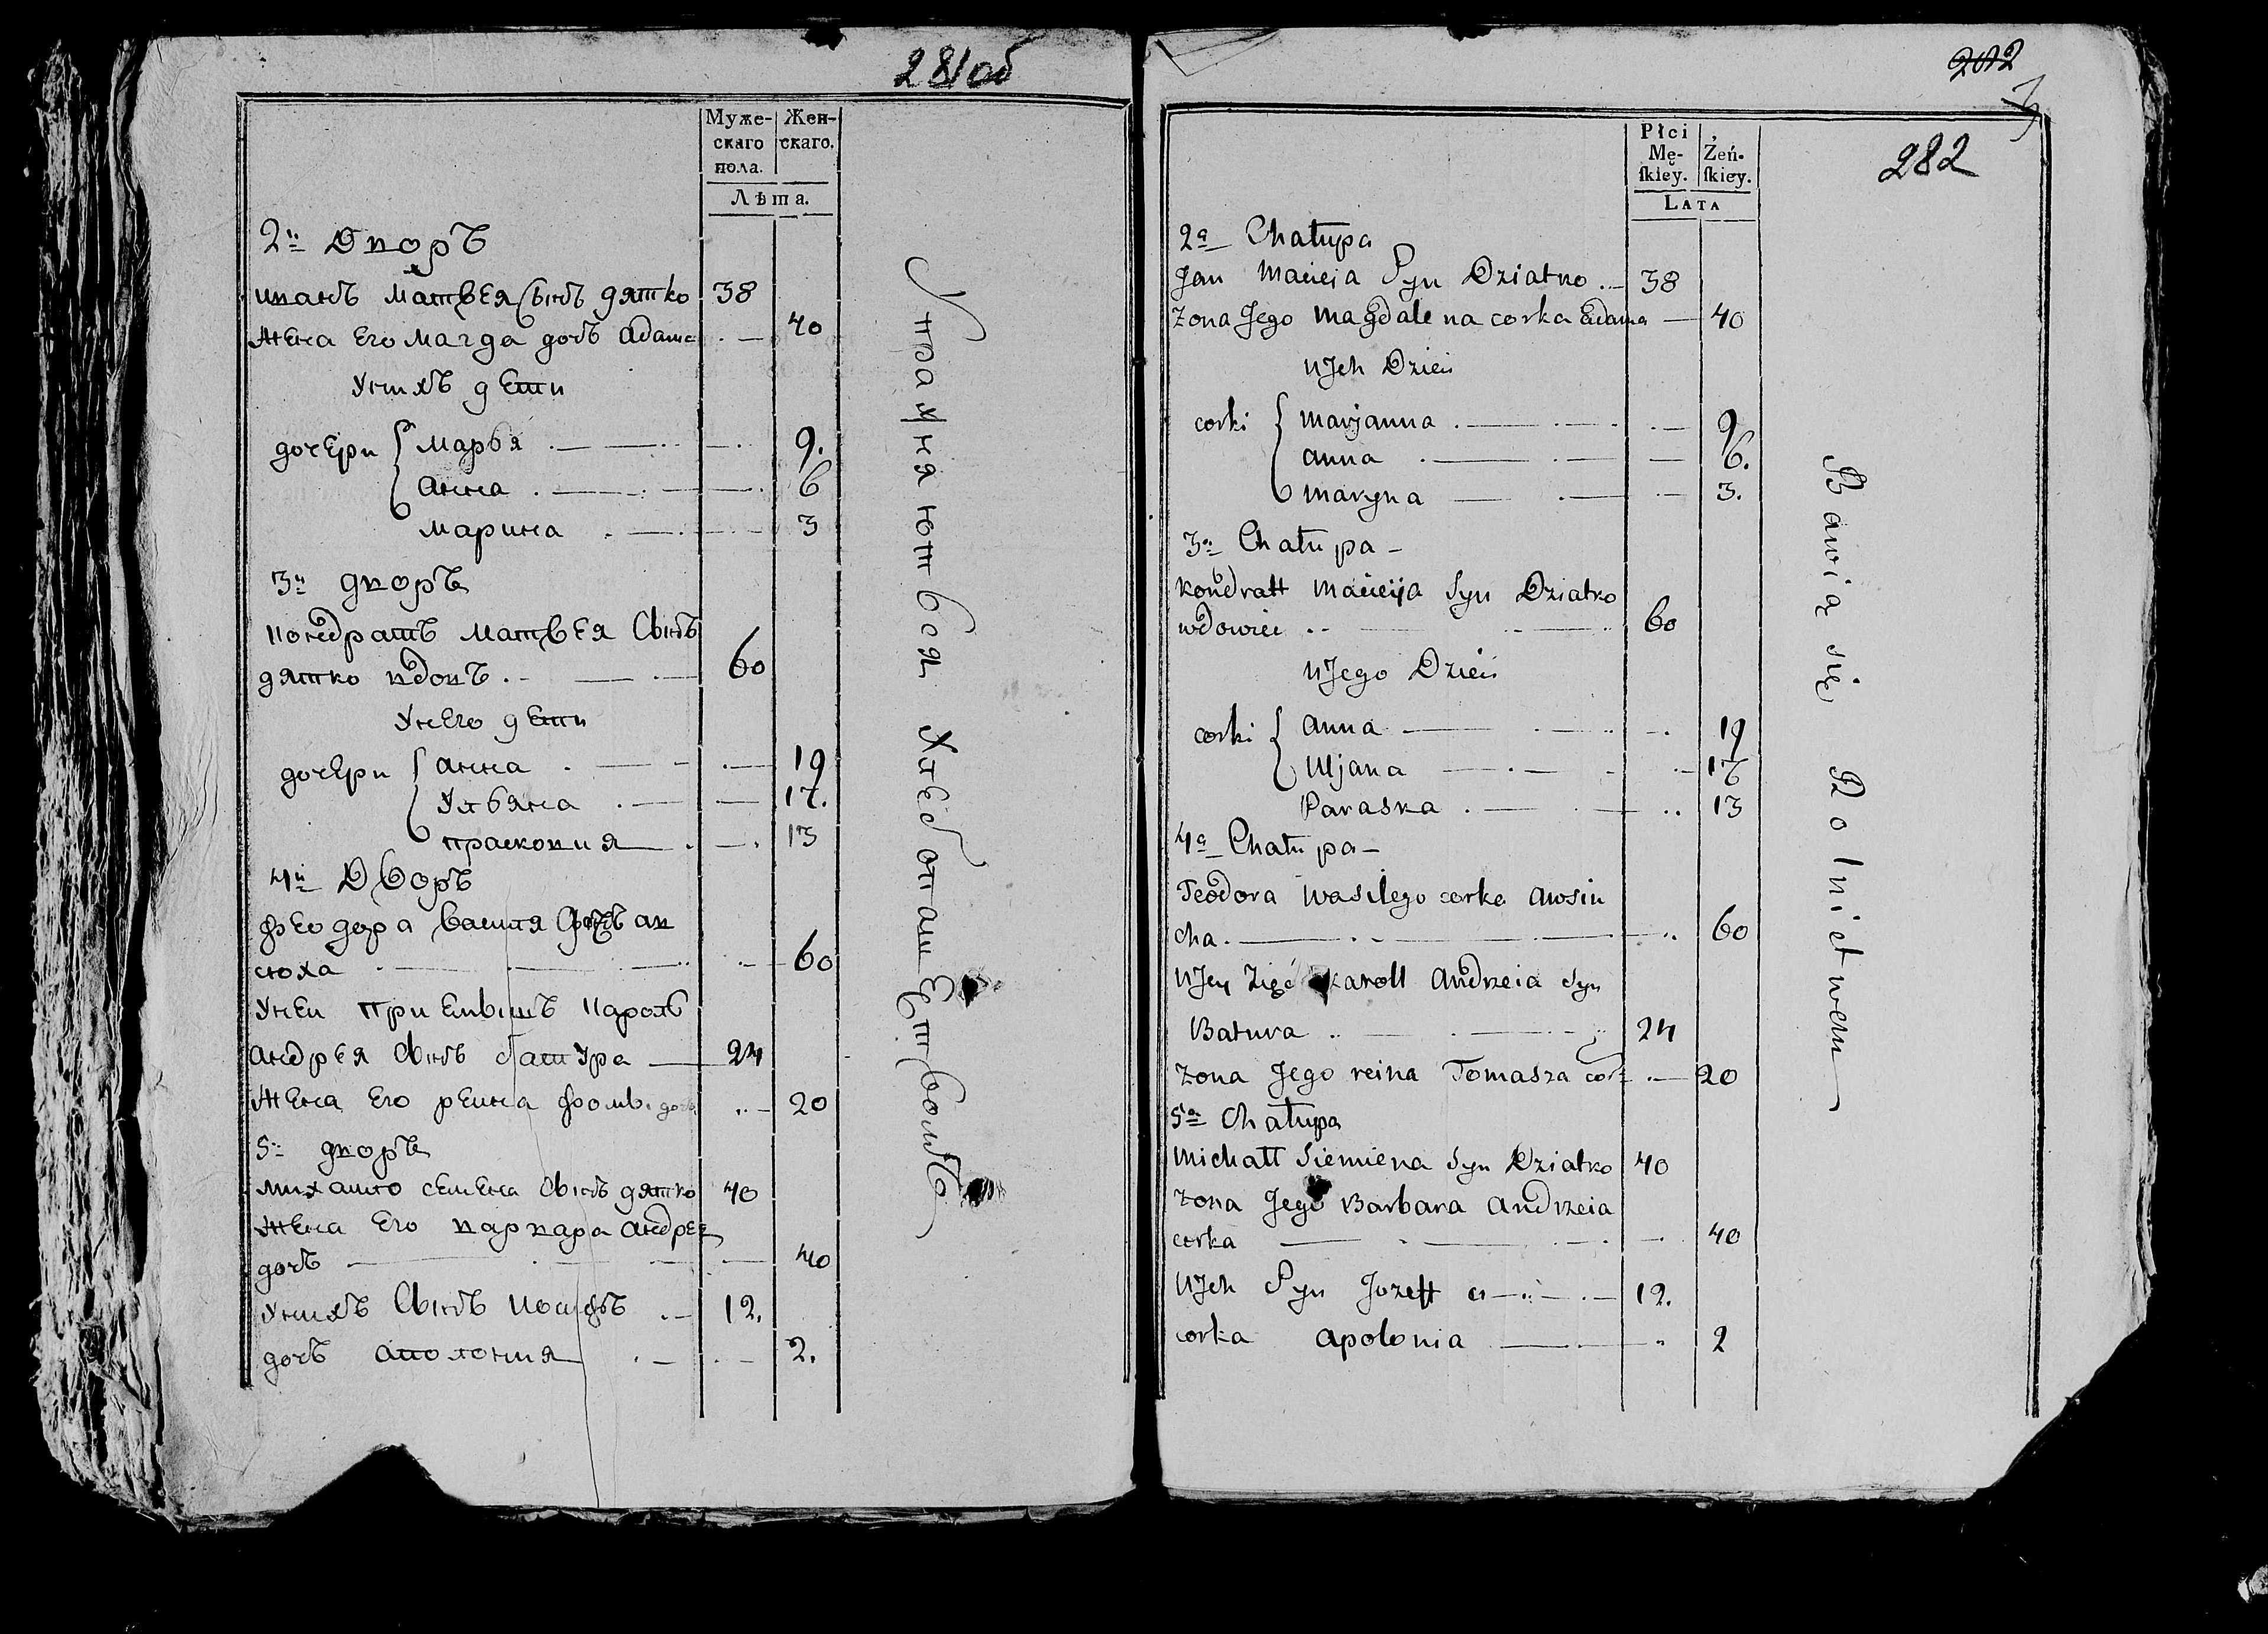 281об
Муже- Жен-
скаго скаго.
пола.
Лѣта.
2й Дворъ
иванъ матвея Сынъ дятко 38
жена его магда дочь адама 40
Унихъ дети
дочери марья 9.
анна 6
марина 3
3й дворъ
кондратъ матвея Сынъ
дятко вдовъ 60
Унего дети
дочери анна 19
Ульяна 17.
прасковия 13
4й Дворъ
феодора василя дочь ав
сюха 60
Уней приемышъ кароль
андрея Сынъ батура 24
жена его реина фомы дочь 20
5й дворъ
михайло семена Сынъ дятко 40
жена его варвара андрея
дочь 40
Унихъ Сынъ иосифъ 12.
дочь аполония 2.
Упражняются Хлебопашетвомъ
202
282
Płci Żeń-
Mę- ſkiey.
ſkiey.
LATA
2a Chałupa
Jan Macieja Syn Dziatko 38
żona Jego magdalena corka adama 40
uJch Dzieci
corki marjanna 9
anna 6.
maryna 3.
3a Chałupa
kondratt macieja Syn Dziatko
wdowiec 60
uJego Dzieci
corki anna 19
Uljana 17
Paraska 13
4a Chałupa
Teodora wasilego corka awsiu
cha 60
uJey Zięć karoll andrzeia Syn
Batura 24
żona Jego reina Tomasza cor: 20
5a Chałupa
michałł Siemiena Syn Dziatko 40
żona Jego Barbara andrzeia
corka 40
uJch Syn Jozeff 12.
corka apolonia 2
Bawią się Rolnictwem